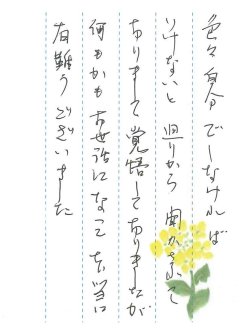 色々自分でしなければ
いけないと周りから聞かされて
おりまして覚悟しておりましたが
何もかもお世話になって本当に
有難うございました